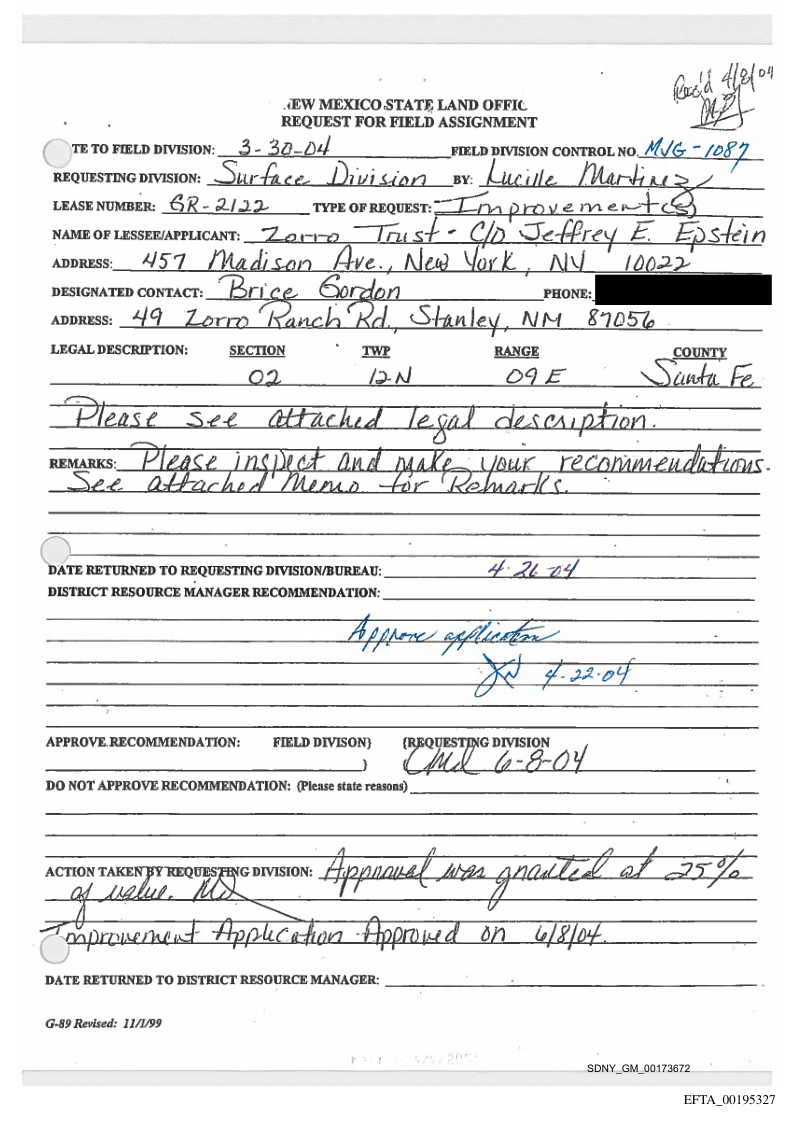 Rec'd 4/8/04
.EW MEXICO STATE LAND OFFIC
REQUEST FOR FIELD ASSIGNMENT
TE TO FIELD DIVISION: 3-30-04 FIELD DIVISION CONTROL NO. MJG-1087
REQUESTING DIVISION: Surface Division BY: Lucille Martinez
LEASE NUMBER: GR-2122 TYPE OF REQUEST: Improvement(s)
NAME OF LESSEE/APPLICANT: Zorro Trust - C/O Jeffrey E. Epstein
ADDRESS: 457 Madison Ave., New York, NY 10022
DESIGNATED CONTACT: Brice Gordon PHONE:
ADDRESS: 49 Zorro Ranch Rd., Stanley, NM 87056
LEGAL DESCRIPTION: SECTION TWP RANGE COUNTY
02 12N 09E Santa Fe
Please see attached legal description.
REMARKS: Please inspect and make your recommendations.
See attached Memo for Remarks.
DATE RETURNED TO REQUESTING DIVISION/BUREAU: 4-26-04
DISTRICT RESOURCE MANAGER RECOMMENDATION:
Approve application
4-22-04
APPROVE RECOMMENDATION: FIELD DIVISON} {REQUESTING DIVISION
} { 6-8-04
DO NOT APPROVE RECOMMENDATION: (Please state reasons)
ACTION TAKEN BY REQUESTING DIVISION: Approval was granted at 25%
of value.
Improvement Application Approved on 6/8/04.
DATE RETURNED TO DISTRICT RESOURCE MANAGER:
G-89 Revised: 11/1/99
SDNY_GM_00173672
EFTA_00195327